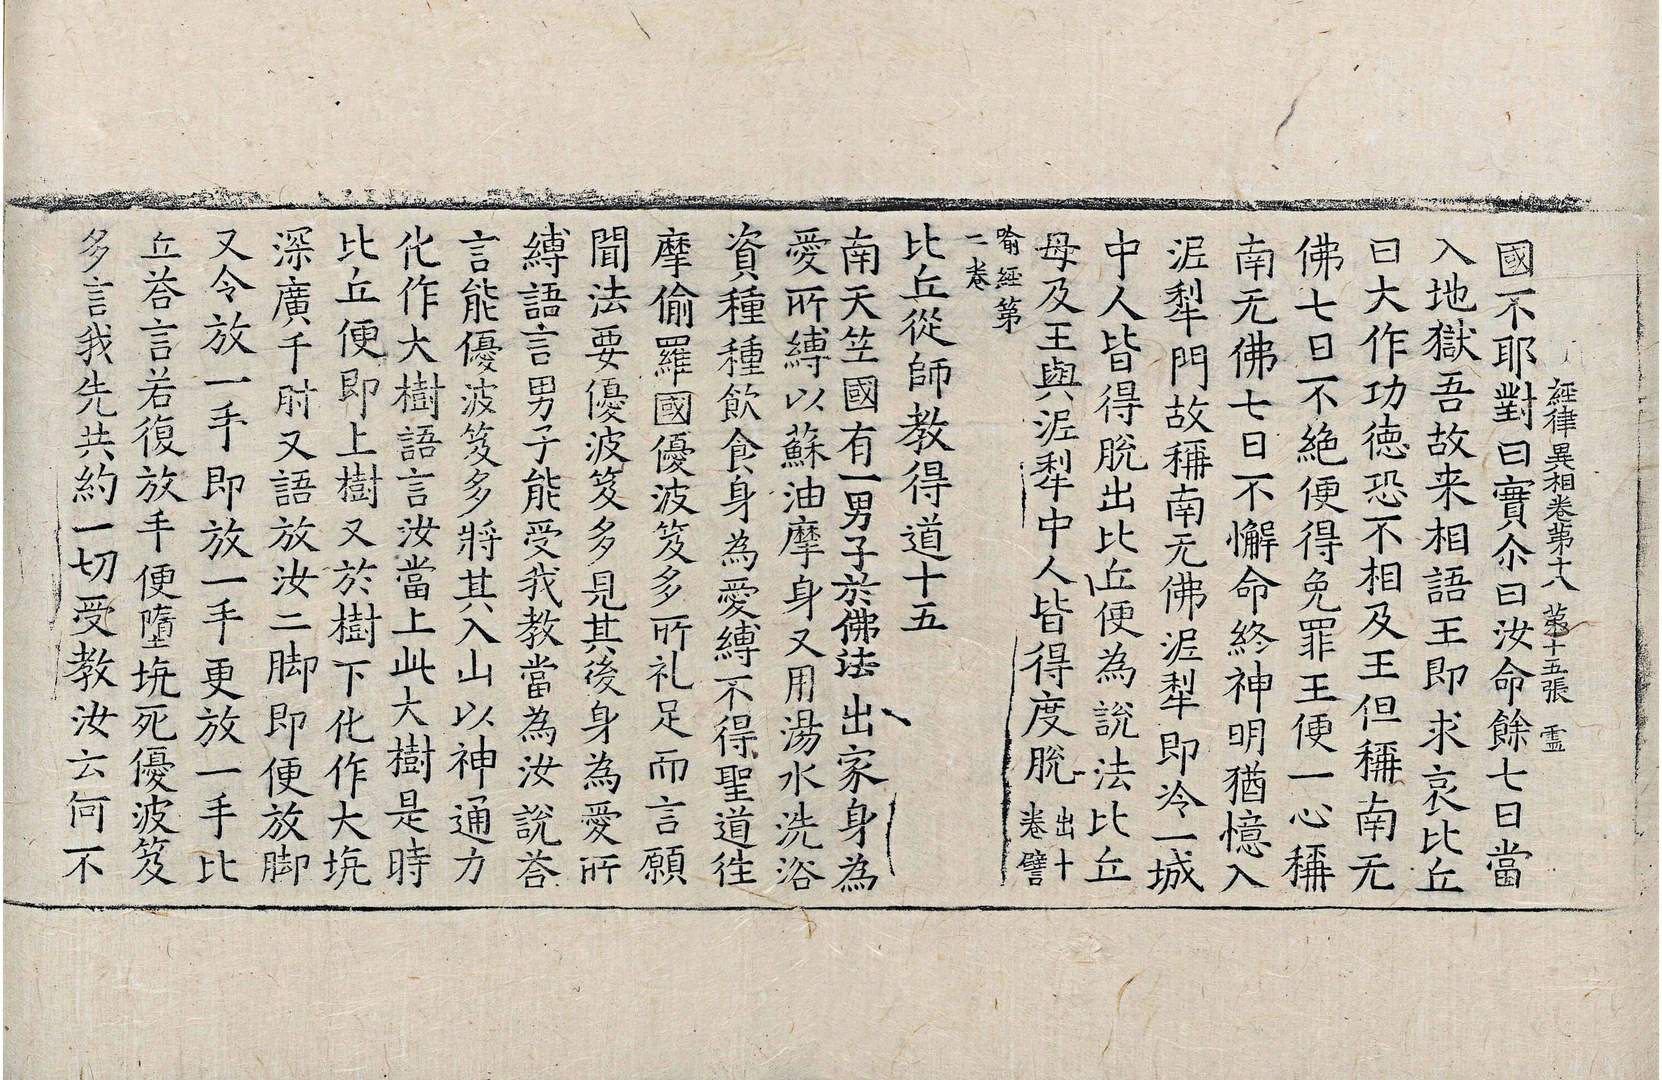 經律異相卷第十八 第十五張 靈
國不耶對曰實尒曰汝命餘七日當
入地獄吾故来相語王即求哀比丘
曰大作功德恐不相及王但稱南无
佛七日不絶便得免罪王便一心稱
南无佛七日不懈命終神明猶憶入
泥犁門故稱南无佛泥犁即冷一城
中人皆得脫出比丘便為說法比丘
母及王與泥犁中人皆得度脫出十卷譬
喻經第二卷
比丘從師教得道十五
南天竺國有一男子於佛法出家身為
愛所縛以蘇油摩身又用湯水洗浴
資種種飲食身為愛縛不得聖道往
摩偷羅國優波笈多所礼足而言願
聞法要優波笈多見其後身為愛所
縛語言男子能受我教當為汝說荅
言能優波笈多將其入山以神通力
化作大樹語言汝當上此大樹是時
比丘便即上樹又於樹下化作大坑
深廣千肘又語放汝二脚即便放脚
又令放一手即放一手更放一手比
丘荅言若復放手便墮坑死優波笈
多言我先共約一切受教汝云何不